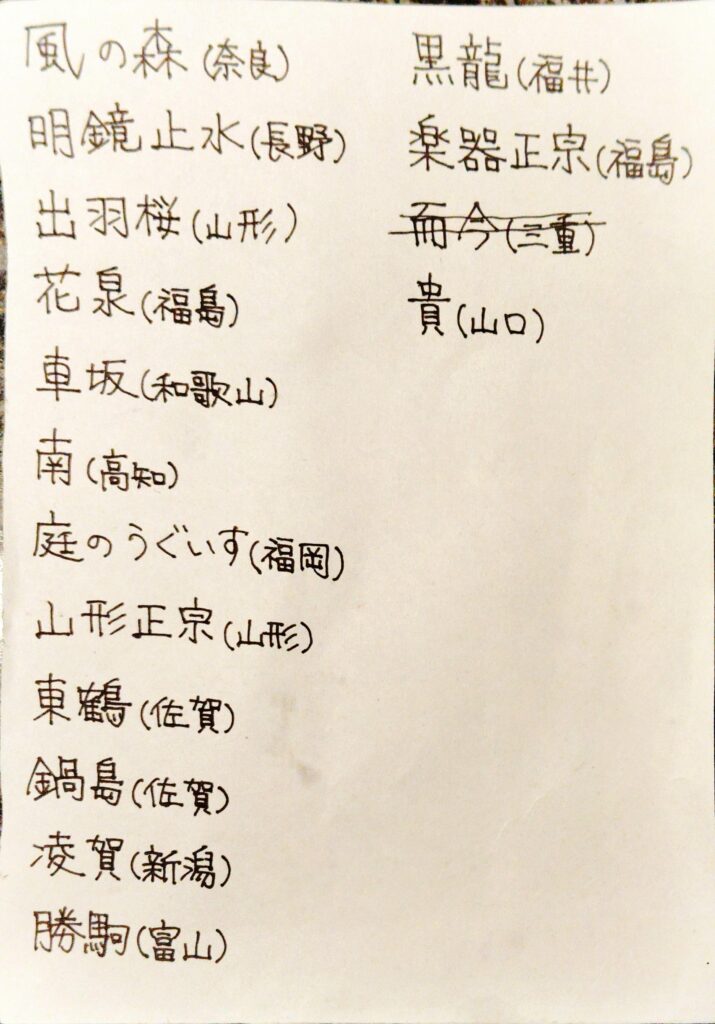 風の森(奈良)
明鏡止水(長野)
出羽桜(山形)
花泉(福島)
車坂(和歌山)
南(高知)
庭のうぐいす(福岡)
山形正宗(山形)
東鶴(佐賀)
鍋島(佐賀)
凌賀(新潟)
勝駒(富山)
黒龍(福井)
楽器正宗(福島)
而今(三重)
貴(山口)